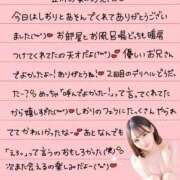 今日はしおりとあそんでくれてありがとうござい
ました(*'ω'*) お部屋とお風呂場どちも暖房
つけてくれてたの天才だよ(*'ω'*)💕 優しいお兄さん
でよかったよー!ありがとね 2回目のデリヘルどうだ
た-? めっちゃ「呼んでよかったー!」って言ってくれてた
から嬉しいぎた💕 しおりのフェラにたっくさんやられ
ててかわいかったな〜💕 あとなんでも
「えろっ」って言うのおもしろかった(笑)
次また会えるの楽しみだよー(*'ω'*)💕